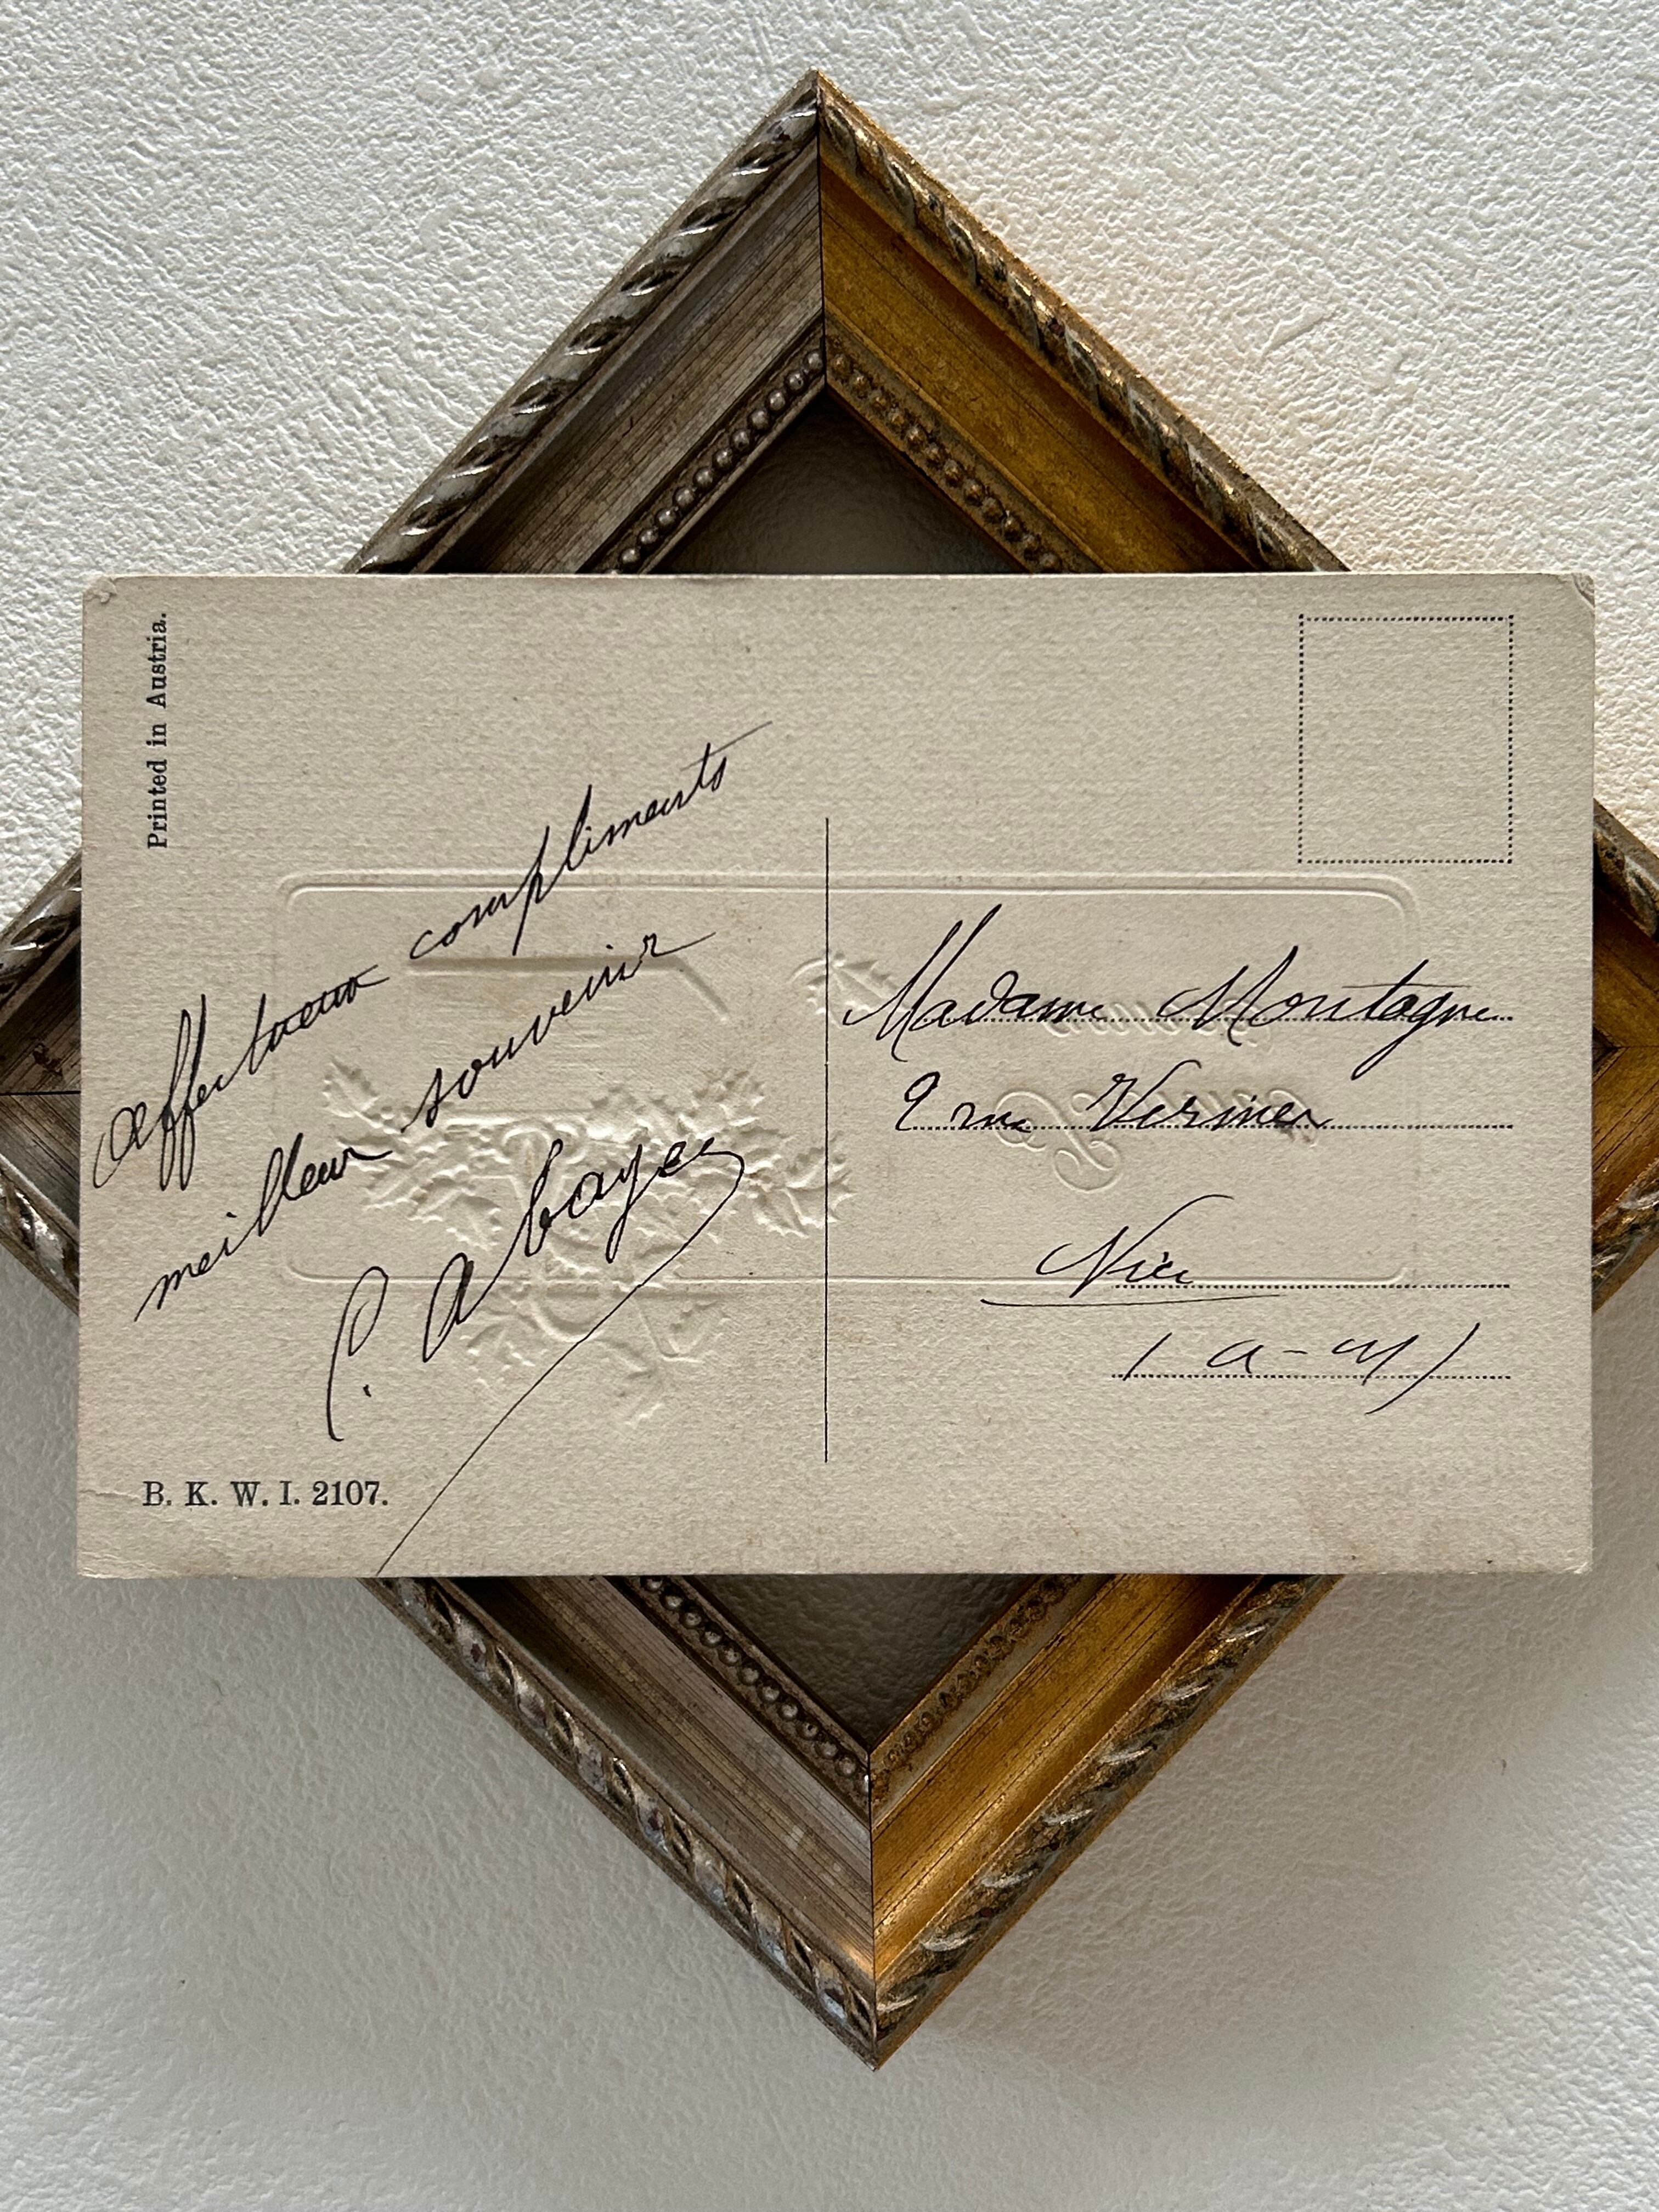 Printed in Austria.
affectueux compliments
meilleur souvenir
C. Abayer
Madame Montagne
9 rue Vernier
Nice
(a-m)
B. K. W. I. 2107.